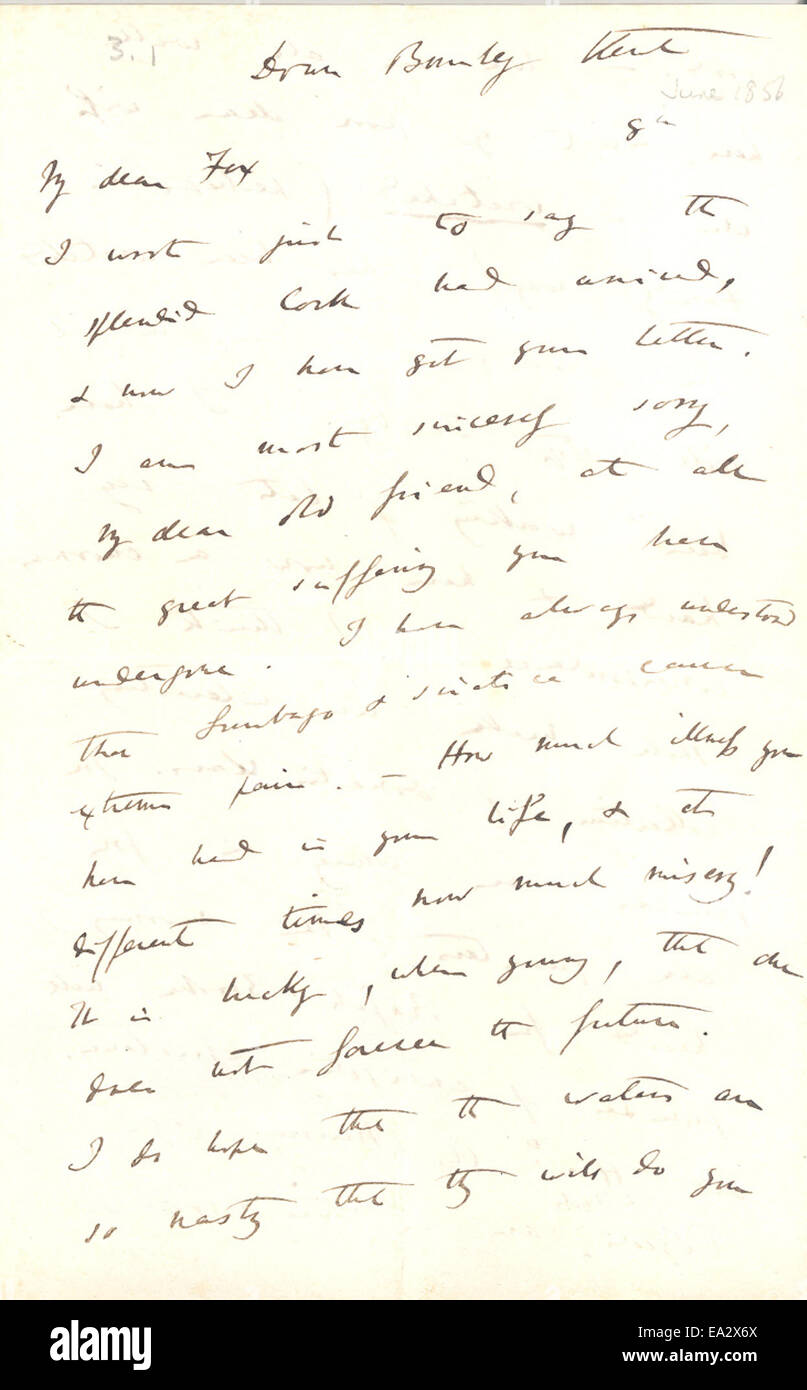 3.1
Down Bromley Kent
June 1856
8th
My dear Fox
I wrote just to say the
splendid Cock had arrived,
& now I have got your letter.
I am most sincerely sorry,
my dear old friend, at all
the great suffering you have
undergone. I have always understood
that Lumbago & sciatica causes
extreme pain. — How much illness you
have had in your life, & at
different times how much misery!
It is lucky, when young, that one
does not foresee the future.
I do hope that the waters are
so nasty that they will do you
alamy
Image ID: EA2X6X
www.alamy.com